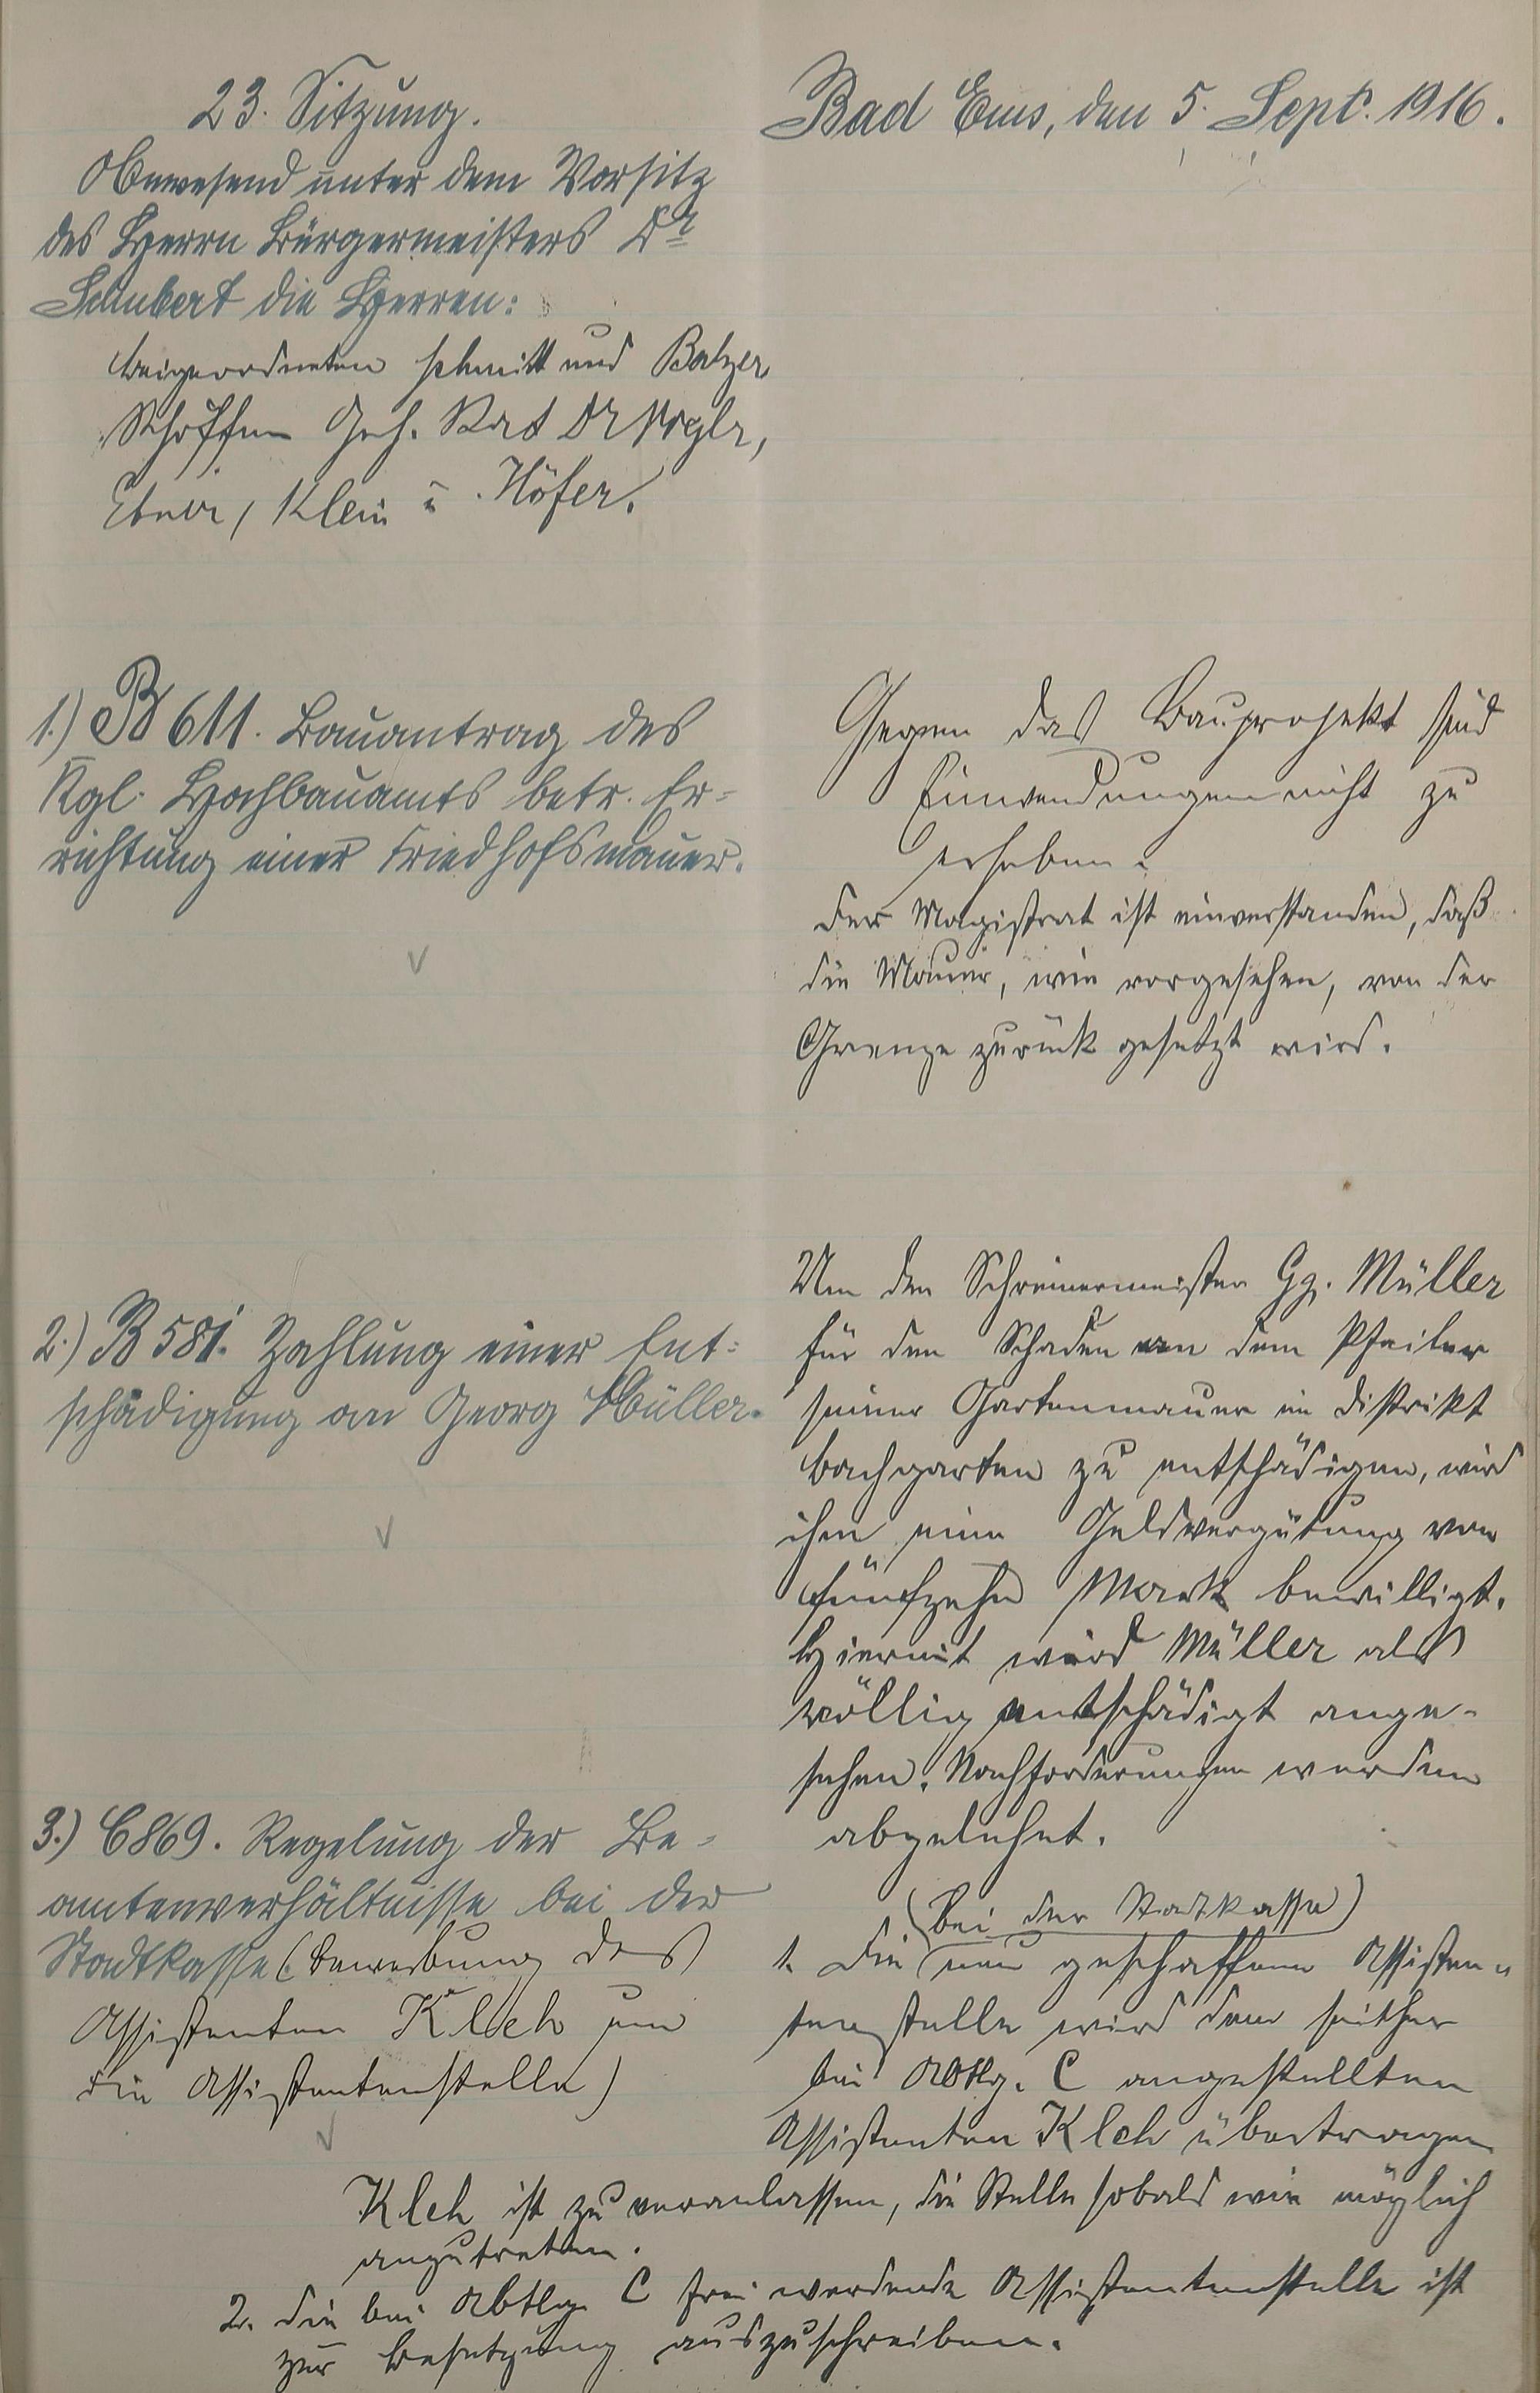 23. Sitzung.
Bad Ems, den 5. Sept. 1916.
Anwesend unter dem Vorsitz
des Herrn Bürgermeisters Dr
Schubert die Herren:
Beigeordneten Schmitt und Balzer
Schöffen Geh. Rat Dr Vogler,
Ebner, Klein u. Höfer.
1.) B 611. Bauantrag des
Kgl. Hochbauamts betr. Er-
richtung einer Friedhofsmauer.
Gegen das Bauprojekt sind
Einwendungen nicht zu
erheben.
Der Magistrat ist einverstanden, daß
die Mauer, wie vorgesehen, von der
Grenze zurück gesetzt wird.
2.) B 581. Zahlung einer Ent-
schädigung an Georg Müller.
Um den Schreinermeister Gg. Müller
für den Schaden an dem Pfeiler
seiner Gartenmauer im Distrikt
Bachgarten zu entschädigen, wird
ihm eine Geldvergütung von
fünfzehn Mark bewilligt.
Hiermit wird Müller als
völlig entschädigt ange-
sehen. Nachforderungen werden
abgelehnt.
3.) C 869. Regelung der Be-
amtenverhältnisse bei der
Stadtkasse (Bewerbung des
Assistenten Klch um
die Assistentenstelle)
(bei der Stadtkasse)
1. Die neu geschaffene Assisten-
tenstelle wird dem seither
bei Abtlg. C angestellten
Assistenten Klch übertragen
Klch ist zu veranlassen, die Stelle sobald wie möglich
anzutreten.
2. Die bei Abtlg C frei werdende Assistentenstelle ist
zur Besetzung auszuschreiben.